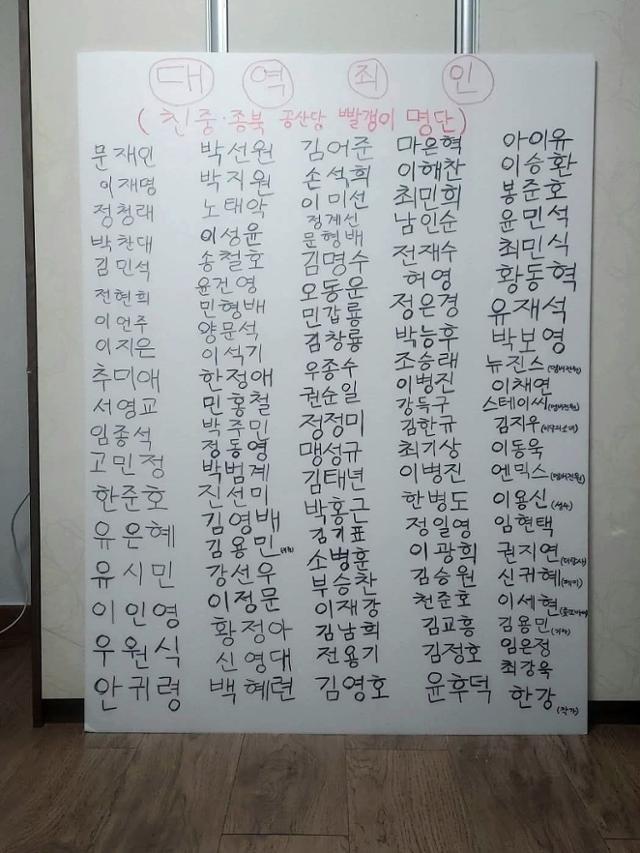 대 역 죄 인
( 친중·종북 공산당 빨갱이 명단)
문재인
이재명
정청래
박찬대
김민석
전현희
이언주
이지은
추미애
서영교
임종석
고민정
한준호
유은혜
유시민
이인영
우원식
안귀령
박선원
박지원
노태악
이성윤
송철호
윤건영
민형배
양문석
이석기
한정애
민홍철
박주민
정동영
박범계
진선미
김영배
김용민
강선우
이정문
황정아
신영대
백혜련
김어준
손석희
이미선
정계선
문형배
김명수
오동운
민갑룡
김창룡
우종수
권순일
정정미
맹성규
김태년
박홍근
김기표
소병훈
부승찬
이재강
김남희
전용기
김영호
마은혁
이해찬
최민희
남인순
전재수
허영
정은경
박능후
조승래
이병진
강득구
김한규
최기상
이병진
한병도
정일영
이광희
김승원
천준호
김교흥
김정호
윤후덕
아이유
이승환
봉준호
윤민석
최민식
황동혁
유재석
박보영
뉴진스(멤버전원)
이채연
스테이씨(멤버전원)
김지우
이동욱
엔믹스(멤버전원)
이용신(성우)
임현택
권지연
신귀혜
이세현
김용민(기자)
임은정
최강욱
한강(작가)